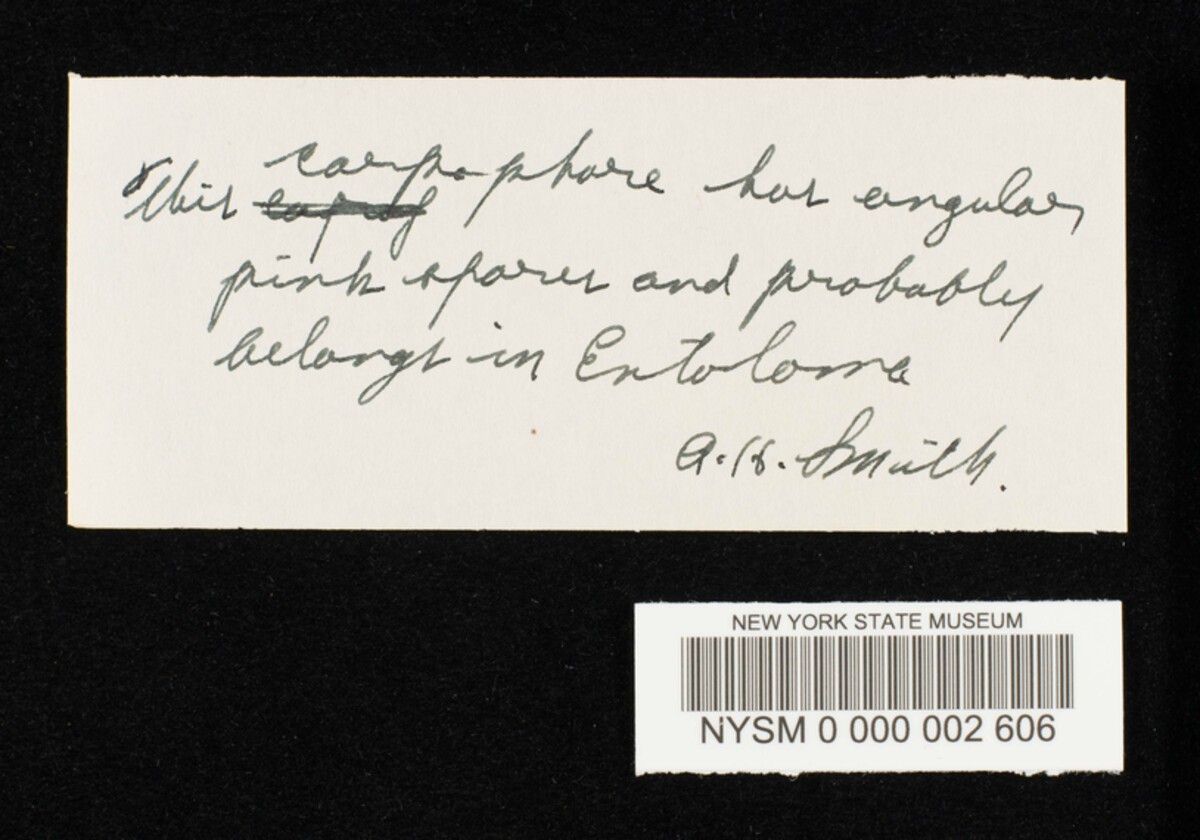 This carpophore has angular
pink spores and probably
belongs in Entoloma
A.H. Smith.
NEW YORK STATE MUSEUM
NYSM 0 000 002 606